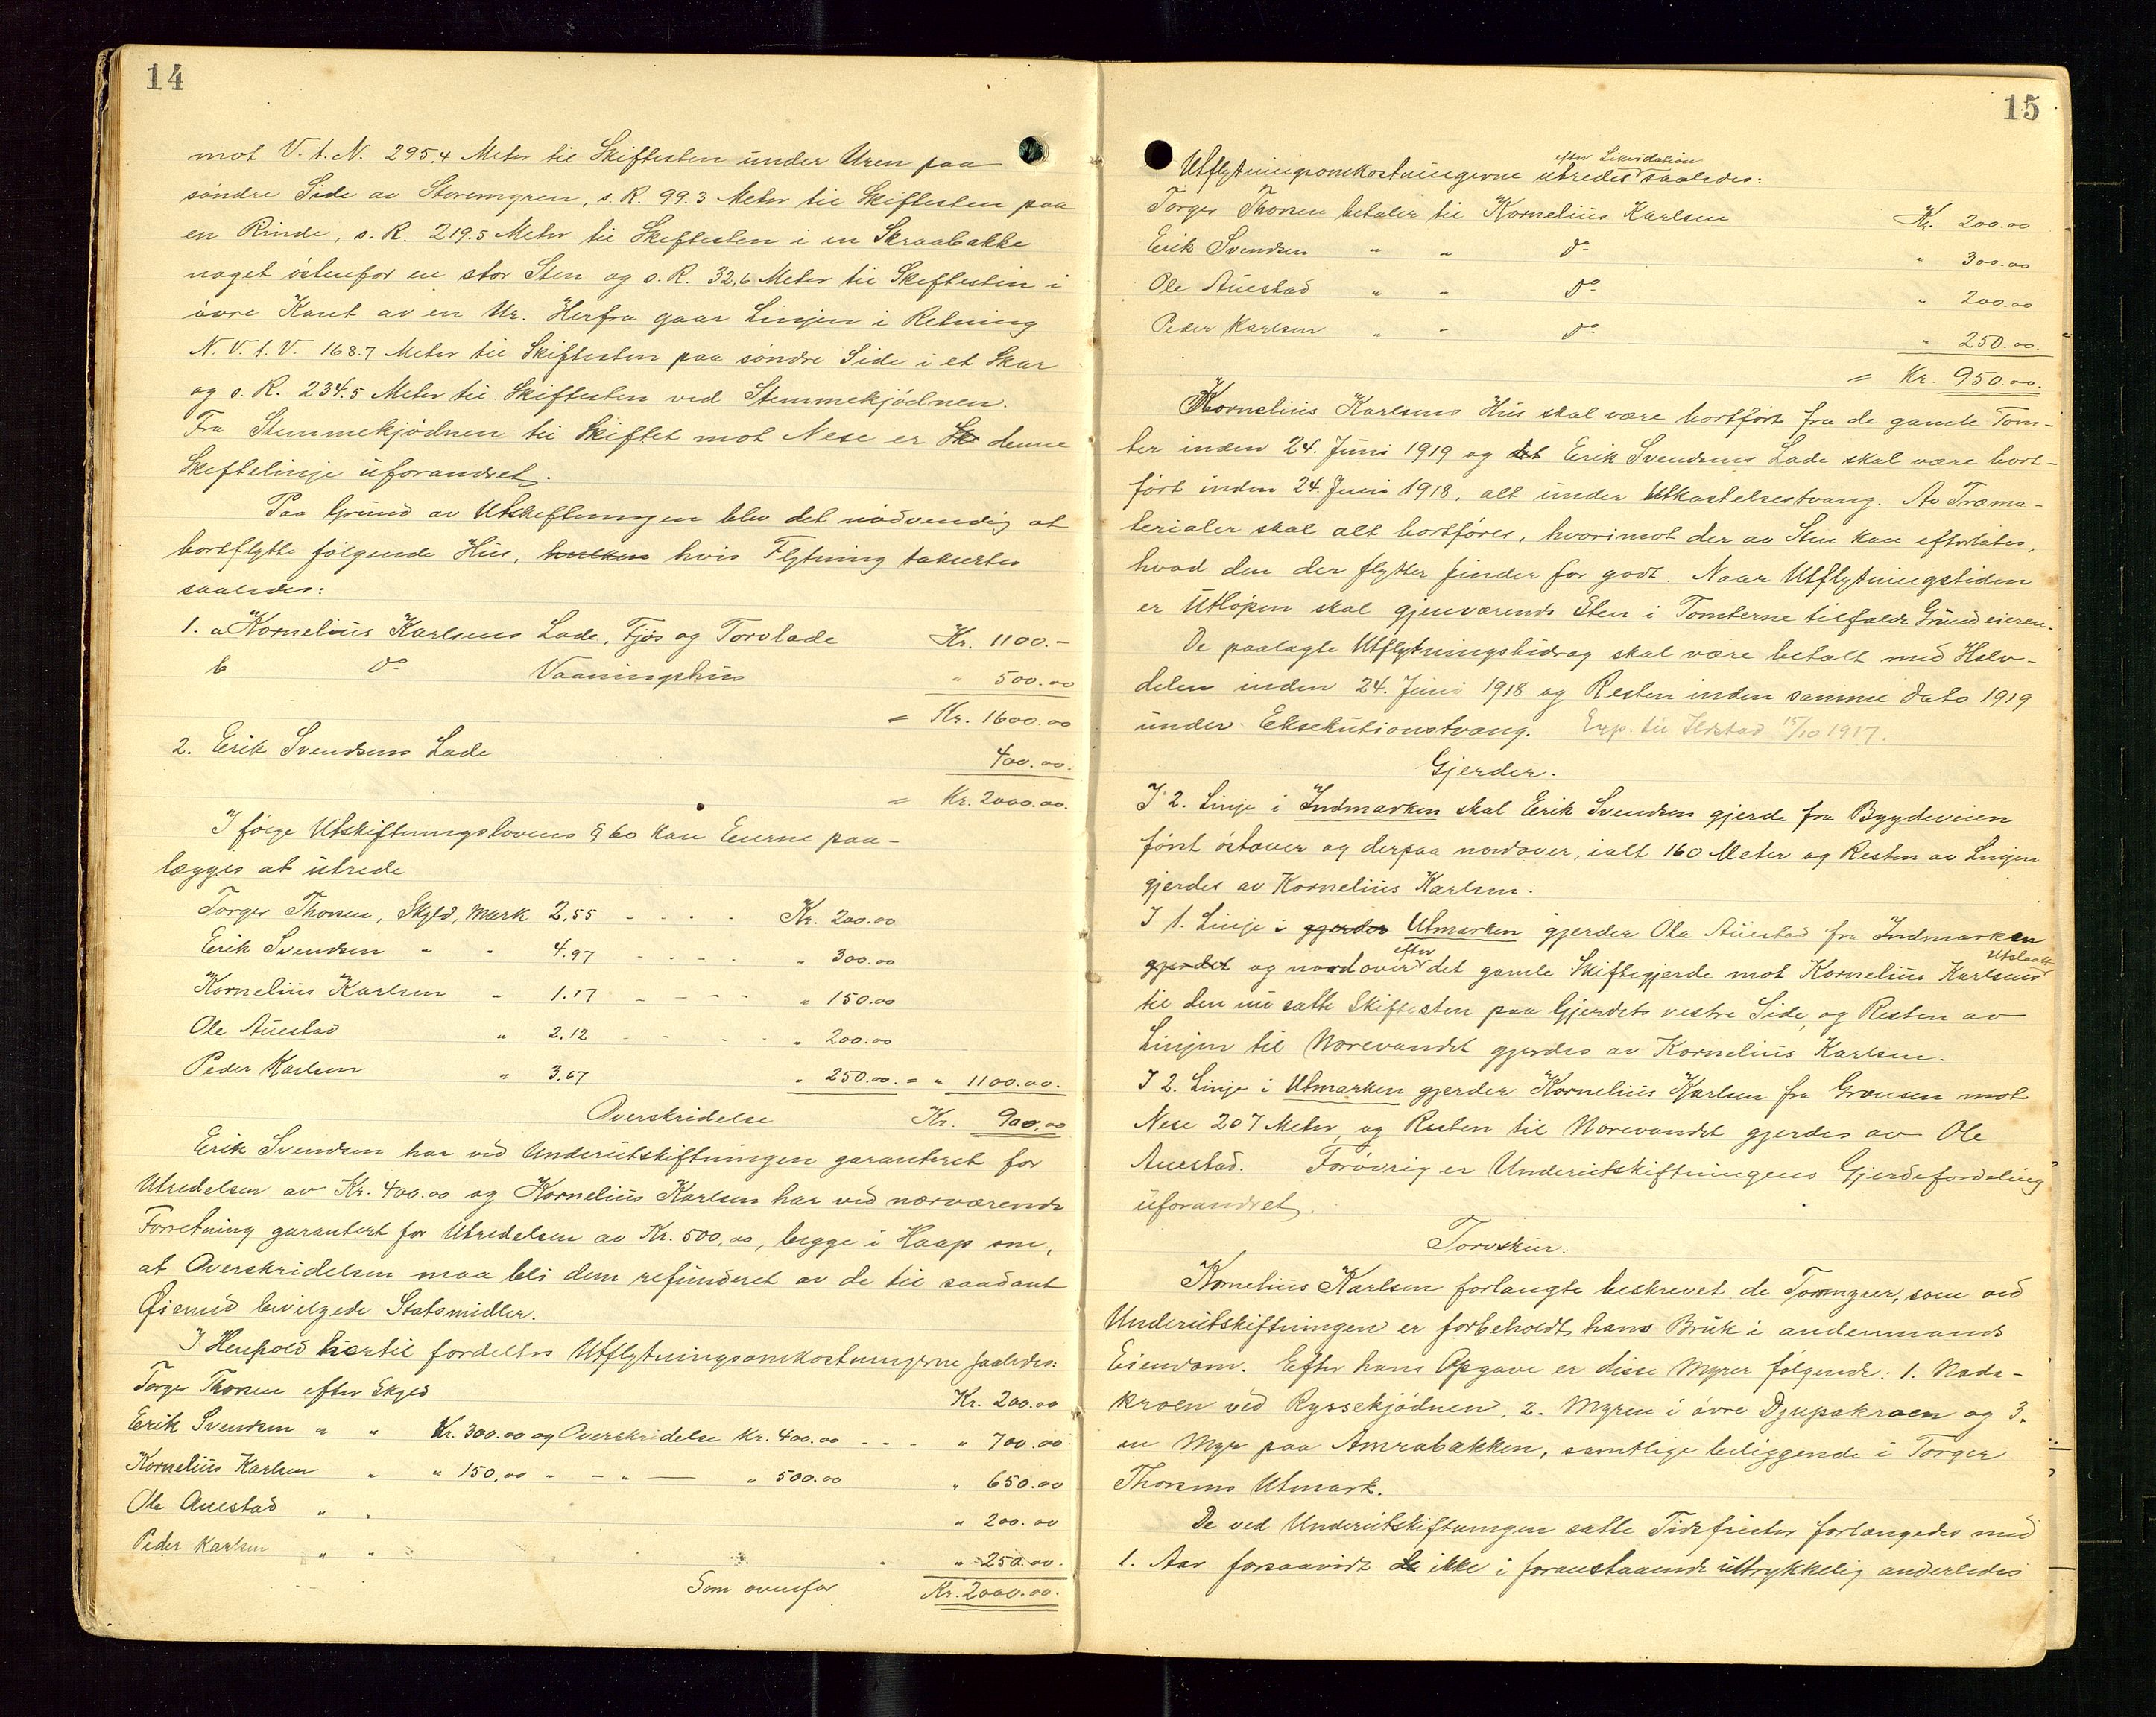 14
mot V. t. N. 295.4 Meter til Skiftesten under Uren paa
søndre Side av Storemyren, s. R. 99.3 Meter til Skiftesten paa
en Rinde, s. R. 219.5 Meter til Skiftesten i en Skraabakke
noget østenfor en stor Sten og s. R. 32,6 Meter til Skiftesten i
øvre Kant av en Ur. Herfra gaar Linjen i Retning
N. V. t. V. 168.7 Meter til Skiftesten paa søndre Side i et Skar
og s. R. 234.5 Meter til Skiftesten ved Stemmekjødnen.
Fra Stemmekjødnen til Skiftet mot Nese er Sk denne
Skiftelinje uforandret.
Paa Grund av Utskiftningen blev det nødvendig at
bortflytte følgende Hus, hvilken hvis Flytning taksertes
saaledes:
1. a Kornelius Karlsens Lade, Fjøs og Torvlade Kr. 1100.-
b do Vaaningshus " 500.00
= Kr. 1600.00
2. Erik Svendsens Lade 400.00.
= Kr. 2000.00.
I følge Utskiftningslovens § 60 kan Eierne paa-
lægges at utrede
Torger Thorsen, Skyld, Mark 2,55 - - - - Kr. 200.00
Erik Svendsen - - 4.97 - - - - " 300.00
Kornelius Karlsen - 1.17 - - - - " 150.00
Ole Auestad " 2.12 - - - - " 200.00
Peder Karlsen " 3.67 " 250.00. = " 1100.00.
Overskridelse Kr. 900.00
Erik Svendsen har ved Underutskiftningen garanteret for
Utredelsen av Kr. 400.00 og Kornelius Karlsen har ved nærværende
Forretning garantert for Utredelsen av Kr. 500,00, begge i Haap om,
at Overskridelsen maa bli dem refunderet av de til saadant
Øiemed bevilgede Statsmidler.
I Henhold hertil fordeltes Utflytningsomkostningerne saaledes:
Torger Thorsen efter Skyld Kr. 200.00
Erik Svendsen " " Kr. 300.00 og Overskridelse Kr. 400.00 - - - " 700.00
Kornelius Karlsen " " 150.00 - - " — " 500.00 " 650.00
Ole Auestad " " " 200.00
Peder Karlsen " " " 250.00.
Som ovenfor Kr. 2000.00.
15
efter Likvidation
Utflytningsomkostningerne utredes saaledes:
Torger Thorsen betaler til Kornelius Karlsen Kr. 200.00
Erik Svendsen " " do " 300.00
Ole Auestad " " do " 200.00
Peder Karlsen " " do " 250.00.
= Kr. 950.00.
Kornelius Karlsens Hus skal være bortført fra de gamle Tom-
ter inden 24. Juni 1919 og det Erik Svendsens Lade skal være bort-
ført inden 24. Juni 1918, alt under Utkastelsestvang. Av Træma-
terialer skal alt bortføres, hvorimot der av Sten kan efterlates,
hvad den der flytter finder for godt. Naar Utflytningstiden
er Utløpen skal gjenværende Sten i Tomterne tilfalde Grundeieren.
De paalagte Utflytningsbidrag skal være betalt med Halv-
delen inden 24. Juni 1918 og Resten inden samme Dato 1919
under Eksekutionstvang. Exp. til 15/10 1917.
Gjerder.
I 2. Linje i Indmarken skal Erik Svendsen gjerde fra Bygdeveien
først østover og derpaa nordover, ialt 160 Meter og Resten av Linjen
gjerdes av Kornelius Karlsen.
I 1. Linje i gjerder Utmarken gjerder Ola Auestad fra Indmarken
gjerdet og nordover efter det gamle Skiftegjerde mot Kornelius Karlsens Utslaatt
til den nu satte Skiftesten paa Gjerdets vestre Side, og Resten av
Linjen til Norevandet gjerdes av Kornelius Karlsen.
I 2. Linje i Utmarken gjerder Kornelius Karlsen fra Grænsen mot
Nese 207 Meter, og Resten til Norevandet gjerdes av Ole
Auestad. Forøvrig er Underutskiftningens Gjerdefordeling
uforandret.
Torvskur:
Kornelius Karlsen forlangte beskrevet de Torvmyrer, som ved
Underutskiftningen er forbeholdt hans Bruk i andenmands
Eiendom. Efter hans Opgave er disse Myrer følgende: 1. Nada-
kroen ved Ryssekjødnen, 2. Myren i øvre Djupakroen og 3.
en Myr paa Amrabakken, samtlige beliggende i Torger
Thorsens Utmark.
De ved Underutskiftningen satte Tidsfrister forlænges med
1. Aar forsaavidt de ikke i foranstaaende uttrykkelig anderledes